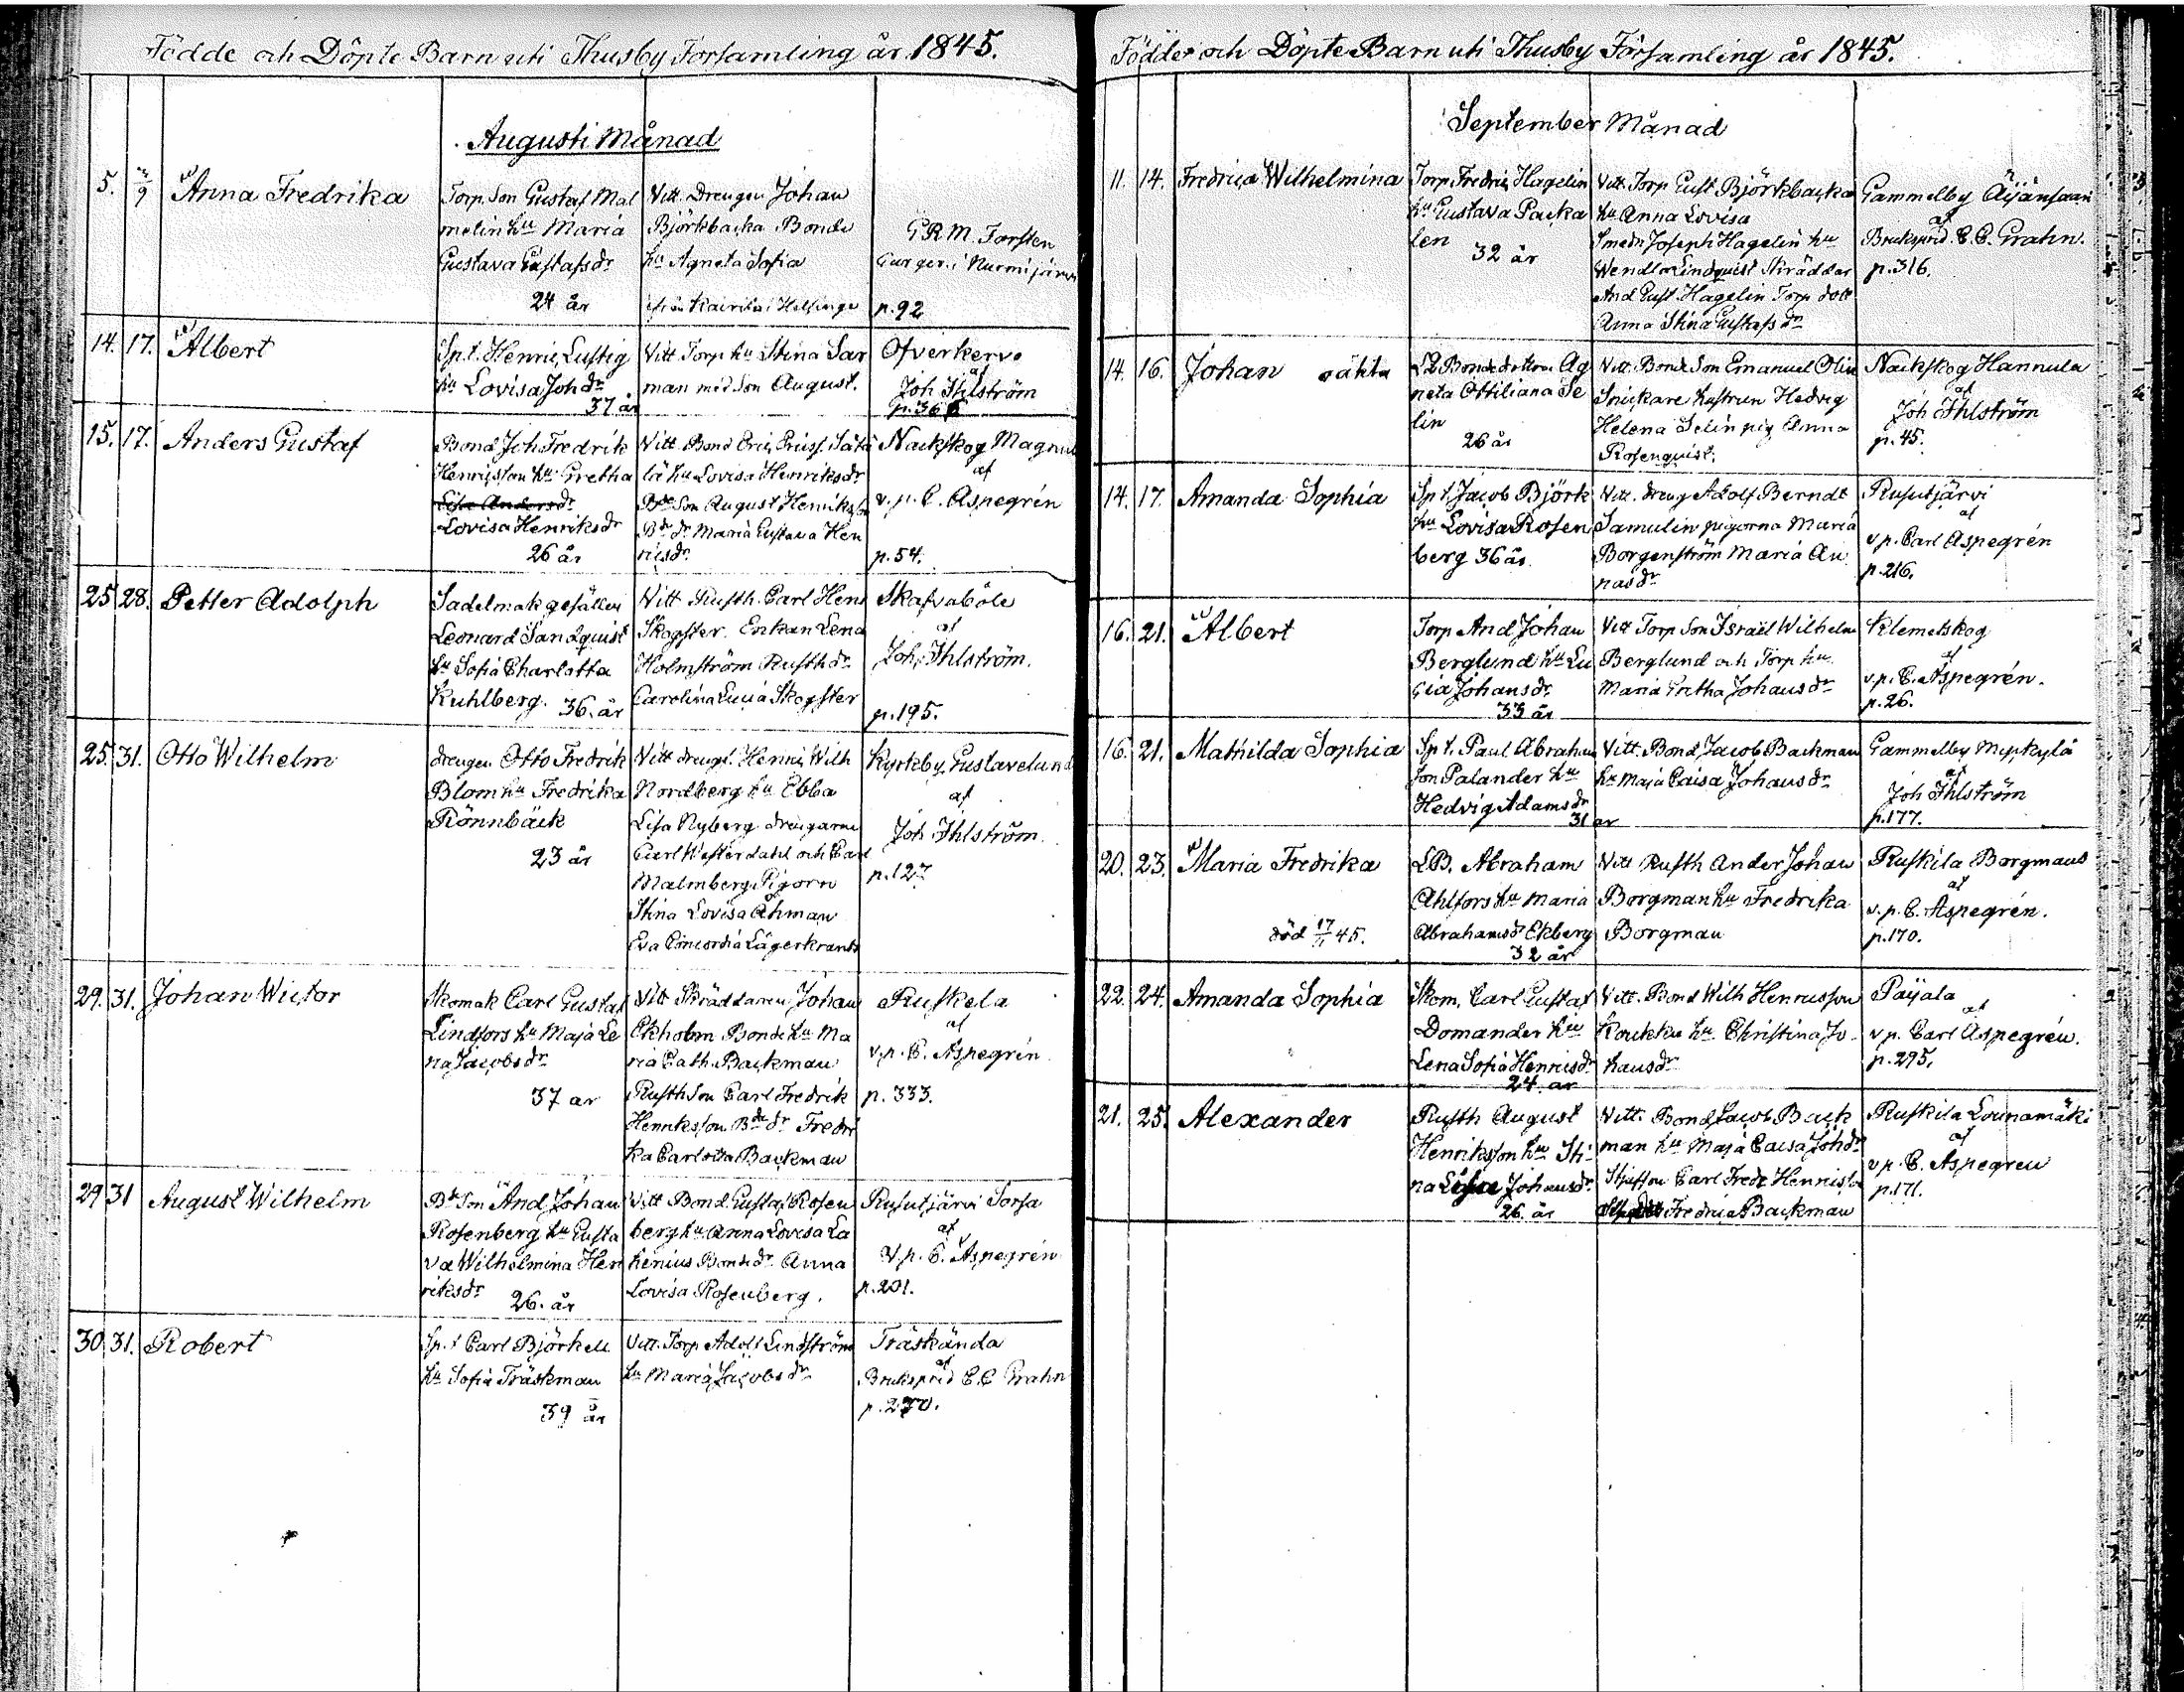 Födde och Döpte Barn uti Thusby Forsamling år 1845.
Augusti Månad
5. 9 Anna Fredrika
Torp. Son Gustaf Mal
melin hu Maria
Gustava Gustafsdr
24 år
Vitt. Drengen Johan
Björkbacka Bonde
hu Agneta Sofia
Helsinge
G R M. Forsten
i Nurmijärvi
p. 92
14. 17. Albert
Sp.t. Henric Lustig
hu Lovisa Johdr
37 år
Vitt. Torp hu Stina Sar
man med Son August.
Ofverkervo
af
Joh Ihlström
p. 36
15. 17. Anders Gustaf
Bond Joh Fredrik
Henricsson hu Gretha
Lisa Andersdr
Lovisa Henriksdr
26 år
Vitt. Bond Eric Ericss. Sätä
lä hu Lovisa Henriksdr
Bde Son August Henriksson
Bde dr Maria Gustava Hen
ricsdr
Nackskog Magnus
af
v. p. C. Aspegrén
p. 54.
25 28. Petter Adolph
Sadelmak gesällen
Leonard Sandquist
hu Sofia Charlotta
Kuhlberg. 36. år
Vitt Rusth. Carl Henr
Skogster. Enkan Lena
Holmström Rusthdr
Carolina Lucia Skogster
Skafvaböle
af
Joh. Ihlström.
p. 195.
25. 31. Otto Wilhelm
drengen Otto Fredrik
Blom hu Fredrika
Rönnbäck
23 år
Vitt drengt. Henric Wilh
Nordberg hu Ebba
Lisa Nyberg drengarne
Carl Westerdahl och Carl
Malmberg Pigorn
Stina Lovisa Åhman
Eva Concordia Lägerkrantz
Kyrkby, Gustavelund
af
Joh Ihlström.
p. 127
29. 31. Johan Wictor
Skomak Carl Gustaf
Lindfors hu Maja Le
na Jacobsdr
37 år
Vitt Skräddaren Johan
Ekholm Bonde hu Ma
ria Cath. Backman
Rusth Son Carl Fredrik
Henriksson Bde dr Fredri
ka Carlotta Backman
Ruskela
af
v. p. C. Aspegrén
p. 333.
29 31 August Wilhelm
Bde Son And Johan
Rosenberg hu Gusta
va Wilhelmina Hen
riksdr 26. år
Vitt Bond Gustaf Rosen
berg hu Anna Lovisa La
henius Bondedr Anna
Lovisa Rosenberg.
Rusutjärvi Sorsa
af
v. p. C. Aspegrén
p. 201.
30. 31. Robert
Sp. t Carl Björkell
hu Sofia Träskman
39 år
Vitt. Torp Adolf Lindström
hu Maria Jacobsdr
Träskända
af
Brukspred C. C Grahn
p. 270.
Födde och Döpte Barn uti Thusby Församling år 1845.
September Månad
11. 14. Fredrica Wilhelmina
Torp. Fredric Hagelin
hu Gustava Packa
len
32 år
Vitt. Torp Gust Björkbacka
hu Anna Lovisa
Smedn Joseph Hagelin hu
Wendla Lindquist Skräddar
And Gust. Hagelin Torp dott
Anna Stina Gustafsdr
Gammelby
af
Brukspred. C. C. Grahn.
p. 316.
14. 16. Johan oäkta
Bonde dottern Ag
neta Ottiliana Se
lin
26 år
Vitt. Bonde Son Emanuel Olin
Snickare hustrun Hedvig
Helena Selin pig Anna
Rosenquist.
Nackskog Hannula
af
Joh Ihlström
p. 45.
14. 17. Amanda Sophia
Sp t. Jacob Björk
hu Lovisa Rosen
berg 36 år
Vitt. dreng Adolf Berndt
Samulin pigorna Maria
Borgenström Maria An
nasdr
Rusutjärvi
af
v p. Carl Aspegrén
p. 216.
16. 21. Albert
Torp And Johan
Berglund hu Lu
cia Johansdr
33 år
Vitt Torp Son Israël Wilhelm
Berglund och Torp hu
Maria Gretha Johansdr
Klemetskog
af
v. p. C. Aspegrén.
p. 26.
16. 21. Mathilda Sophia
Sp t. Paul Abraham
son Palander hu
Hedvig Adamsdr
31 år
Vitt. Bond Jacob Backman
hu Maja Caisa Johansdr
Gammelby Myskylä
af
Joh Ihlström
p. 177.
20. 23. Maria Fredrika
död 17/11 45.
L.B. Abraham
Ahlfors hu Maria
Abrahamsdr Ekberg
32 år
Vitt Rusth Ander Johan
Borgman hu Fredrika
Borgman
Ruskila Borgmans
af
v. p. C. Aspegrén.
p. 170.
22. 24. Amanda Sophia
Skom. Carl Gustaf
Domander hu
Lena Sofia Henricsdr
24 år
Vitt. Bond Wilh Henricsson
Koukku hu Christina Jo-
hansdr
Paijala
af
v p. Carl Aspegrén.
p. 295.
21. 25. Alexander
Rusth August
Henriksson hu Sti-
na Johansdr
26. år
Vitt. Bond Jacob Back
man hu Maja Caisa Johdr
Carl Fredr Henricss
Fredrica Backman
Ruskila Lounamäki
af
v p. C. Aspegren
p. 171.